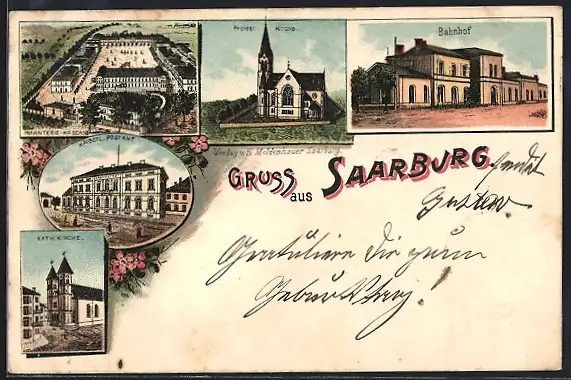 Protest. Kirche.
Bahnhof
INFANTERIE-KASERNE
Verlag v. B. Meldenhauer Saarburg.
KAISERL. POSTAMT
GRUSS aus SAARBURG
sendet
Gustav
KATH. KIRCHE.
Gratuliere Dir zum
Geburtstag!